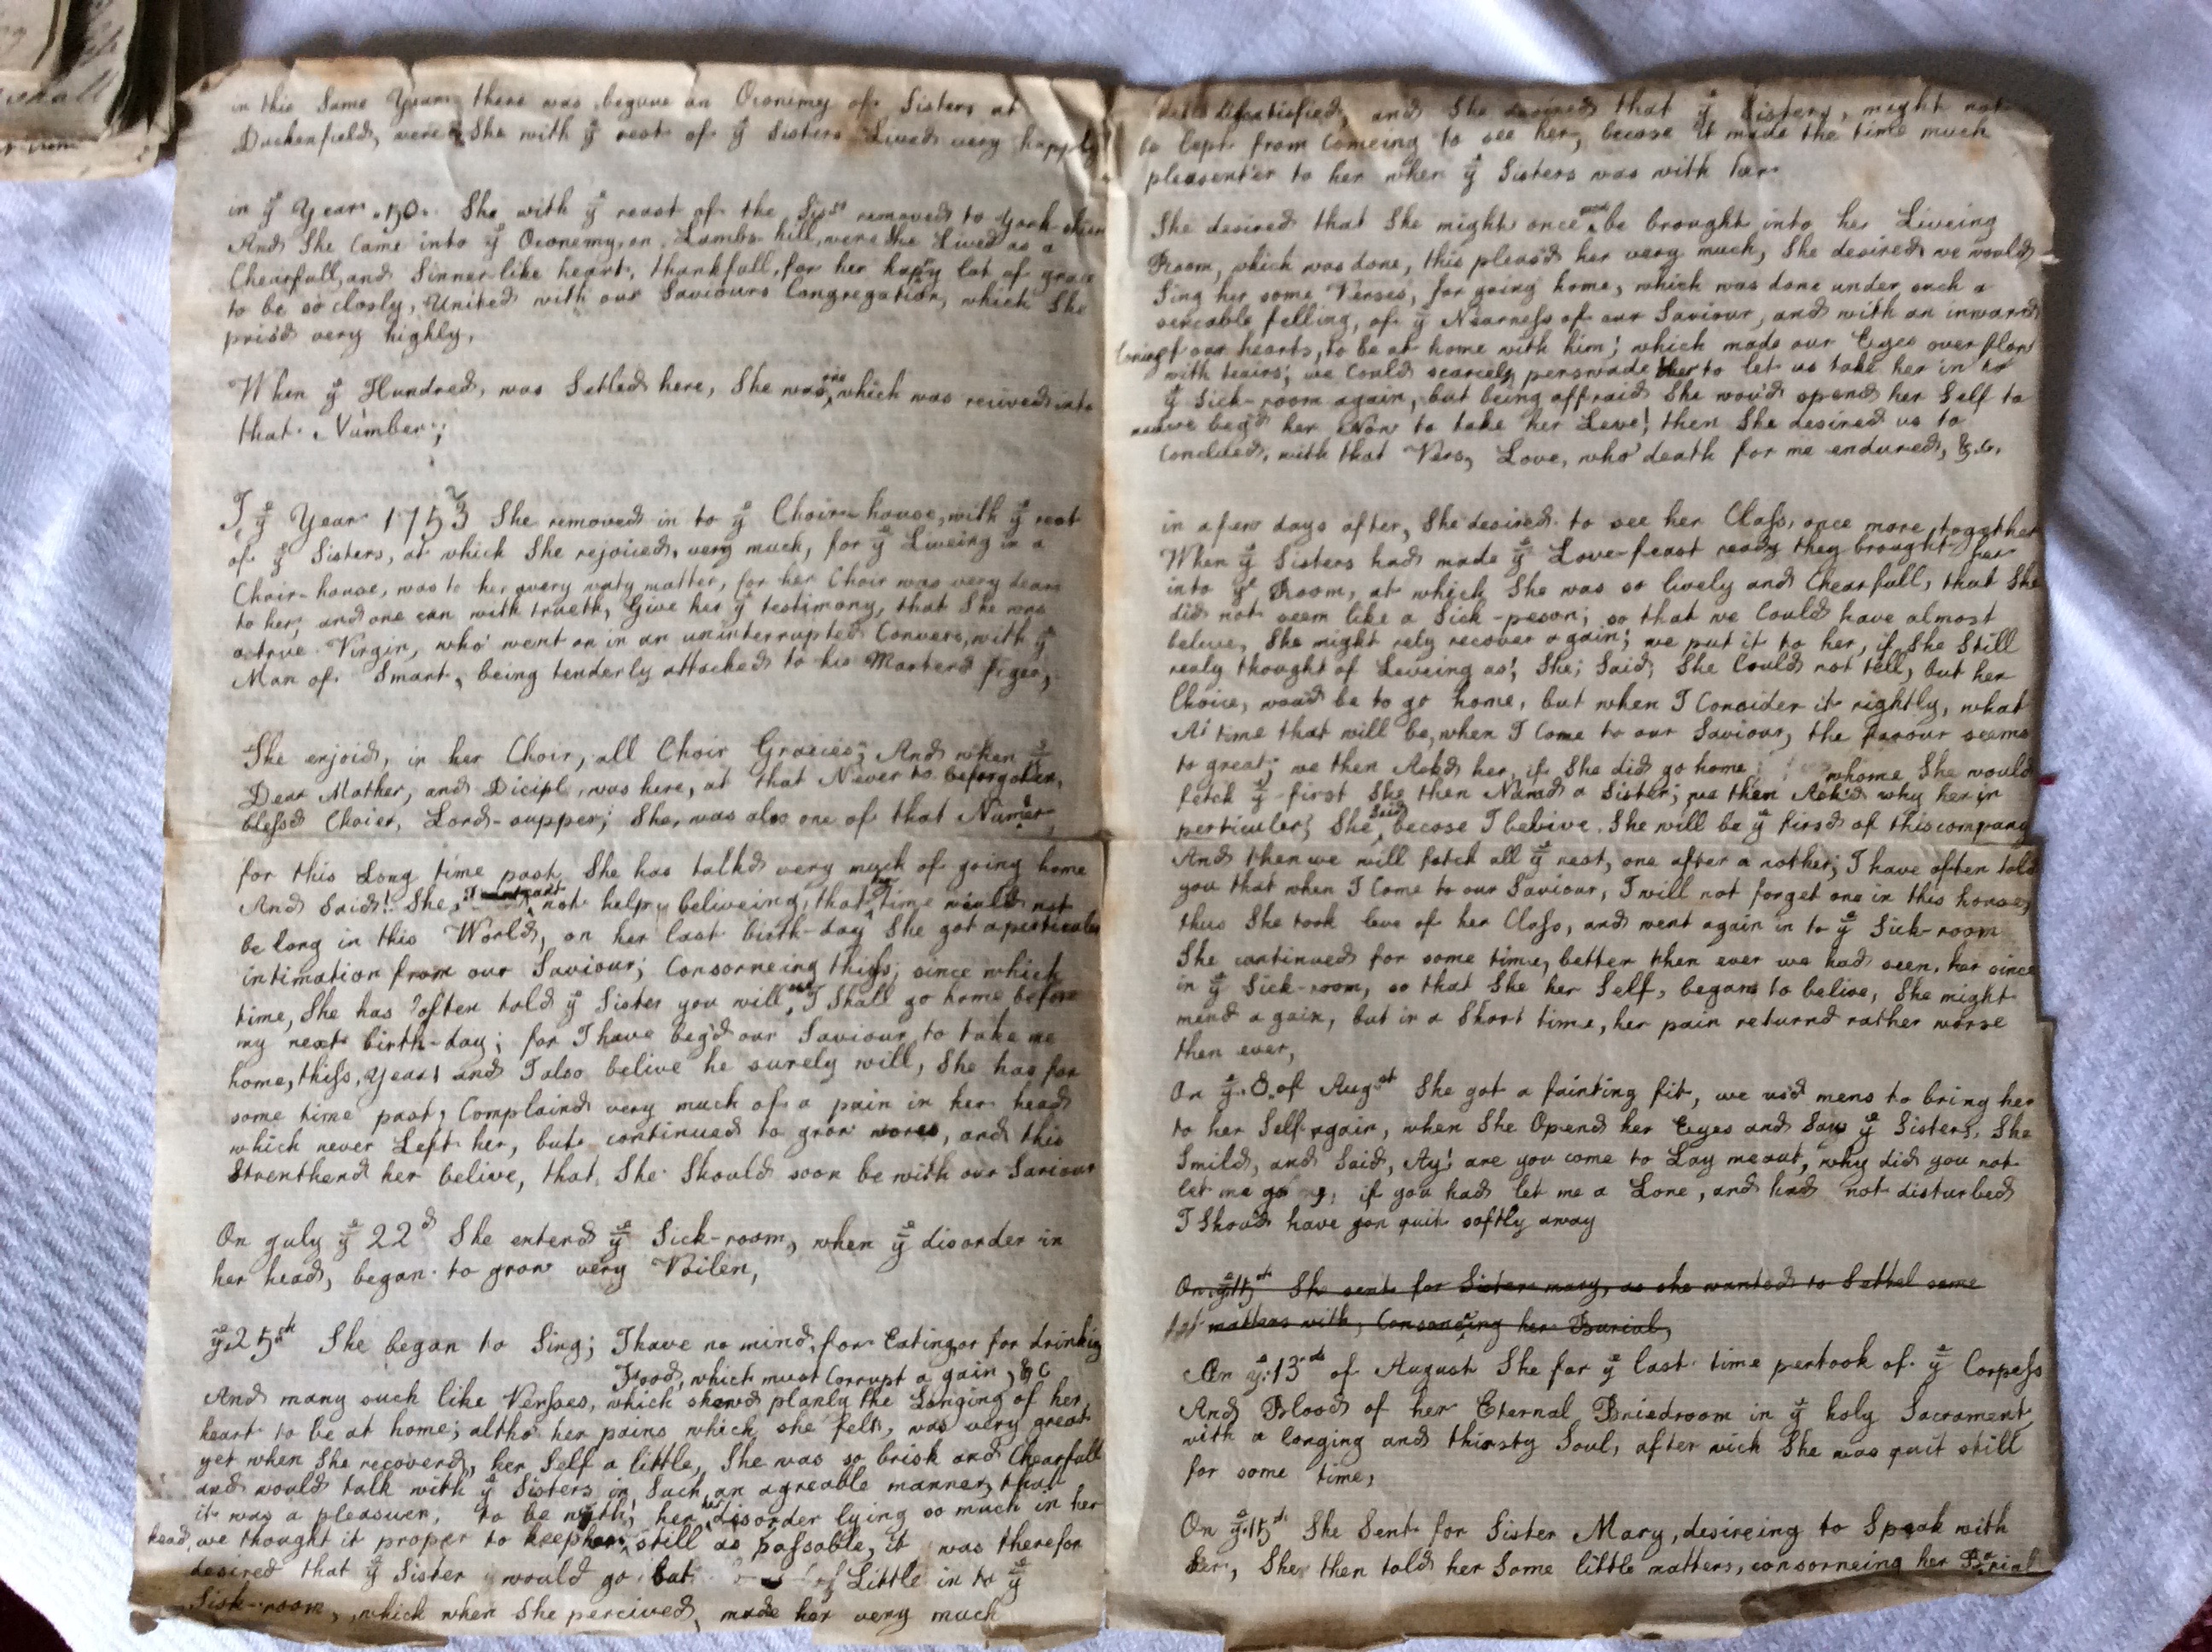 in this Same Year there was begune an Oconemy of Sisters at
Duckenfield, were She with ye rest of ye Sisters Lived very happly
in ye Year .50. She with ye reast of the Sisrs removed to York-shier
And She Came into ye Oconemy, on Lambs-hill, were She Lived as a
Chearfull, and Sinner-like heart, thankfull, for her happy lot of grace
to be so closly, United with our Saviours Congregation, which She
prisd very highly,
When ye Hundred, was Setled here, She was one which was recived into
that Number;
I, ye Year 1753 She removed in to ye Choir-house, with ye rest
of ye Sisters, at which She rejoiced, very much, for ye Liveing in a
Choir-house, was to her a very waty matter, for her Choir was very dear
to her, and one can with trueth, Give her ye testimony, that She was
a true Virgin, who went on in an uninterrupted Convers, with ye
Man of Smart, being tenderly attached to his Marterd
She enjoid, in her Choir, all Choir Gracies; And when ye
Dear Mother, and Dicipl, was here, at that Never to beforgoten,
blessd Choier, Lord-supper; She, was also one of that Numer,
for this Long time past, She has talkd very much of going home
And Said! She, not help beliveing, that her time would not
be long in this World, on her last birth-day She got a perticuler
intimation from our Saviour; Consorneing thiss; since which
time, She has often told ye Sister you will see, I Shall go home before
my next birth-day; for I have beg'd our Saviour to take me
home, thiss, Year! and I also belive he surely will, She has for
some time past, Complaind very much of a pain in her head
which never Left her, but continued to grow wores, and this
Strenthend her belive, that, She Should soon be with our Saviour
On guly ye 22d She enterd ye Sick-room, when ye disorder in
her head, began to grow very Voilen,
ye 25th She began to Sing; I have no mind, for Eating or for drinking
Food, which must Corrupt a gain, &C
And many such like Versses, which shewd planly the Longing of her
heart to be at home; altho' her pains which she felt, was very great
yet when She recoverd, her Self a little, She was so brisk and Chearfull
and would talk with ye Sisters in Such an agreable manner, that
it was a pleasuer, to be with! her, her disorder lying so much in her
head, we thought it proper to keep her still as possable, it was therefor
desired that ye Sister would go but Little in to ye
Sick-room, which when She percived, made her very much
disatisfied, and She desired that ye Sisters, might not
be kept from Comeing to see her, becose it made the time much
pleasenter to her when ye Sisters was with her
She desired that She might once more be brought into her Liveing
Room, which was done, this pleasd her very much, She desired we would
Sing her some Verses, for going home, which was done under such a
felling, of ye Nearness of our Saviour, and with an inward
Loning of our hearts, to be at home with him! which made our Eyes over flow
with tears; we Could scarcely perswade her to let us take her in to
ye Sick-room again, but being affraid She wou'd spend her Self to
we beg'd her Now to take her Leve! then She desired us to
Conclued, with that Vers, Love, who death for me endured, &.c.
in a few days after, She desired to see her Class, once more toggther
When ye Sisters had made ye Love-feast ready they brought her
into ye Room, at which She was so lively and Chearfull, that She
did not seem like a Sick-peson; so that we Could have almost
beluve, She might rely recover again; we put it to her, if She Still
realy thought of Leveing us! She, Said, She Could not tell, but her
Choice, woud be to go home, but when I Consider it rightly, what
A time that will be, when I Come to our Saviour, the favour seems
to great; we then Askd her, if She did go home whome She would
fetch ye first She then Namd a Sister; we then Ask'd why her in
perticuler; She Said, becose I belive She will be ye firsd of this company
And then we will fetch all ye rest, one after a nother; I have often told
you that when I Come to our Saviour, I will not forget one in this house,
thus She took leve of her Class, and went again in to ye Sick-room
She continued for some time, better then ever we had seen her since
in ye Sick-room, so that She her Self, began to belive, She might
mend a gain, but in a Short time, her pain returnd rather worse
then ever,
On ye .8. of Augst She got a fainting fit, we usd mens to bring her
to her Self again, when She Opend her Eyes and Saw ye Sisters, She
Smild, and Said, Ay! are you come to Lay me out, why did you not
let me go if you had let me a Lone, and had not disturbed
I Shoud have gon quit softly away
On ye 15th She sent for Sister mary, as she wanted to Settel some
matters with, Consorneing her Burial,
On ye 13th of August She for ye last time pertook of ye Corpess
And Blood of her Eternal Briedroom in ye holy Sacrament,
with a longing and thirsty Soul, after wich She was quit still
for some time,
On ye 15th She Sent for Sister Mary, desireing to Speak with
her, She then told her Some little matters, consorneing her Burial